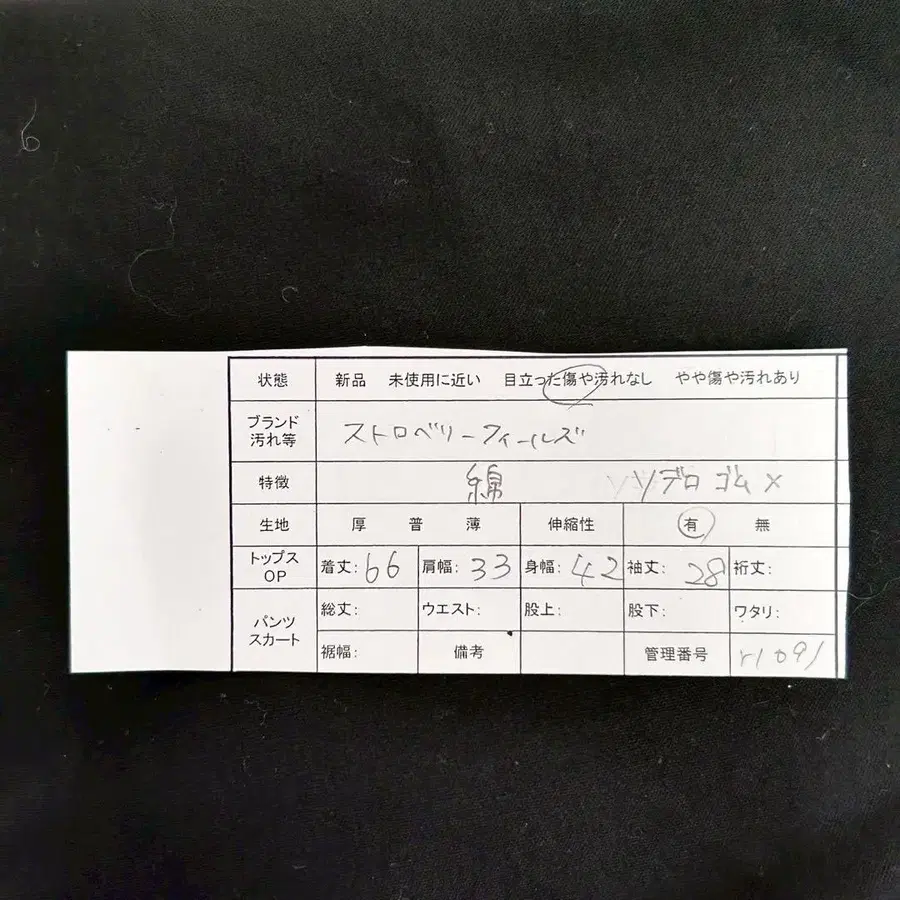 状態 新品 未使用に近い 目立った傷や汚れなし やや傷や汚れあり
ブランド
汚れ等 ストロベリーフィールズ
特徴 綿 ソデロ ゴム×
生地 厚 普 薄 伸縮性 有 無
トップス
OP 着丈: 66 肩幅: 33 身幅: 42 袖丈: 28 裄丈:
パンツ
スカート 総丈: ウエスト: 股上: 股下: ワタリ:
裾幅: 備考 管理番号 r1091